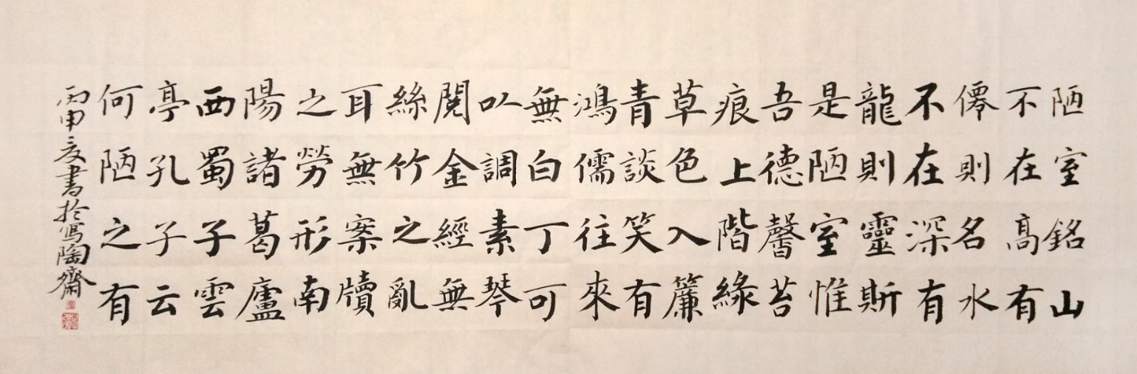 陋室銘山
不在高有
僊則名水
不在深有
龍則靈斯
是陋室惟
吾德馨苔
痕上階緣
草色入簾
青談笑有
鴻儒往來
無白丁可
以調素琴
閱金經無
絲竹之亂
耳無案牘
之勞形南
陽諸葛廬
西蜀子雲
亭孔子云
何陋之有
丙申夏書於寫陶齋